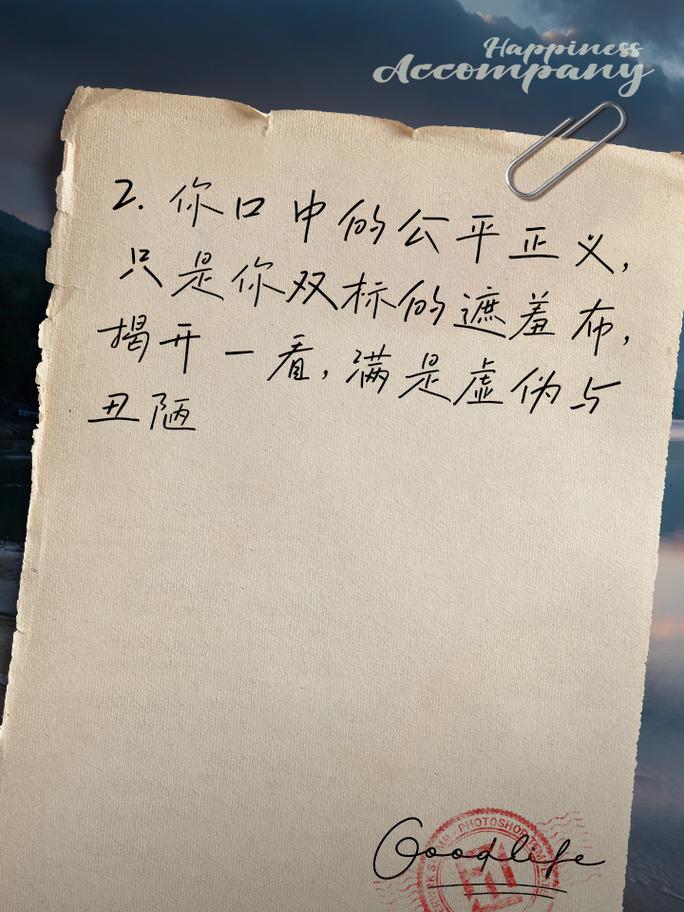 Happiness
Accompany
2. 你口中的公平正义，
只是你双标的遮羞布，
揭开一看，满是虚伪与
丑陋
PHOTOSHOP
Goodlife